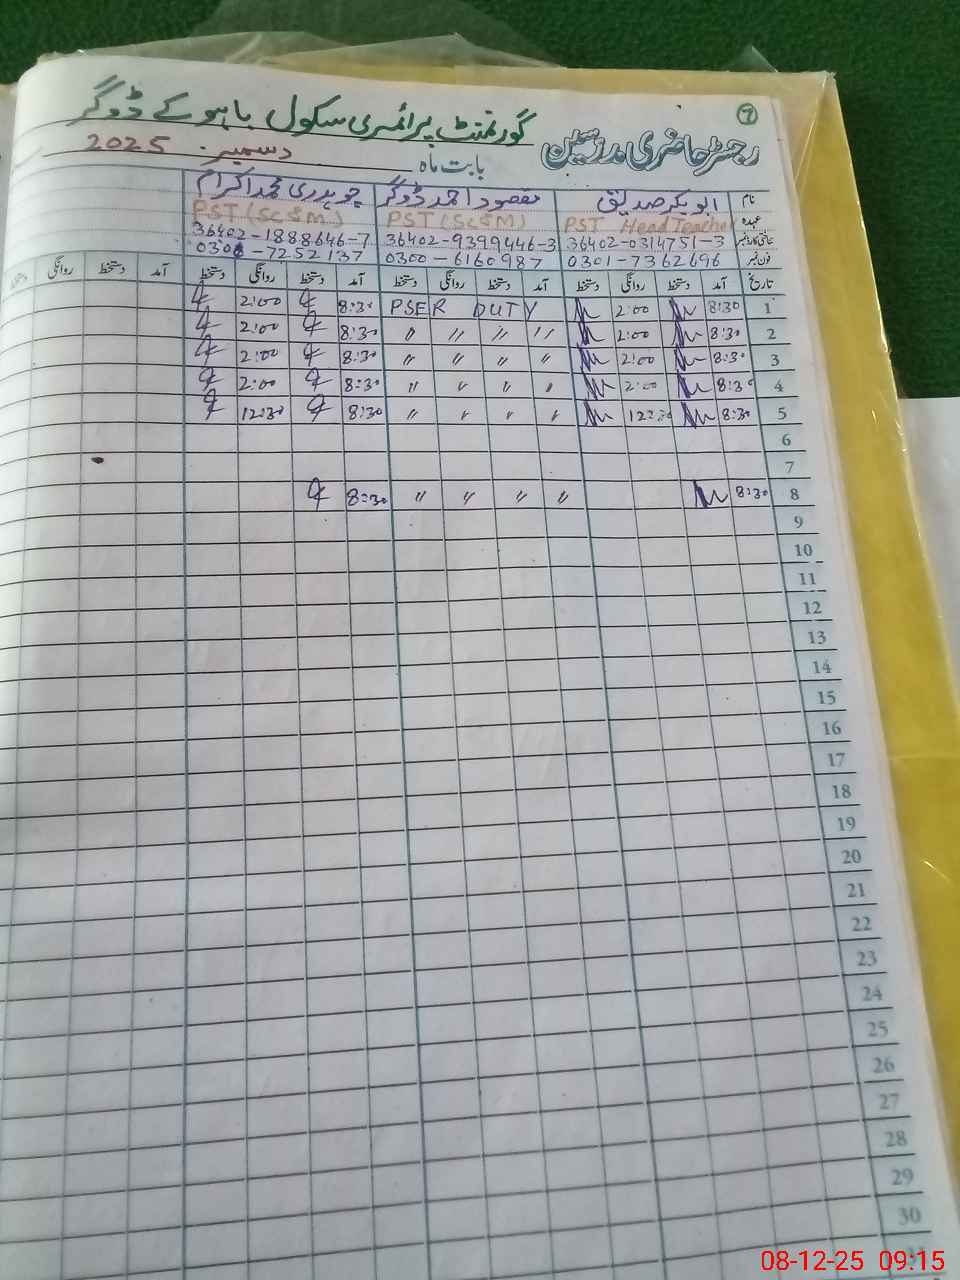 7
گورنمنٹ پرائمری سکول باہو کے ڈوگر
رجسٹر حاضری مدرسین
بابت ماہ دسمبر 2025
نام ابوبکر صدیق مقصود احمد ڈوگر چوہدری محمد اکرام
عہدہ PST Head Teacher PST (Sc&M) PST (Sc&M)
شناختی کارڈ نمبر 36402-0314751-3 36402-9399446-3 36402-1888646-7
فون نمبر 0301-7362696 0300-6160987 0306-7252137
تاریخ آمد دستخط روانگی دستخط آمد دستخط روانگی دستخط آمد دستخط روانگی دستخط آمد دستخط روانگی دستخط
1 8:30 2:00 PSER DUTY 8:30 2:00
2 8:30 2:00 〃 〃 〃 〃 8:30 2:00
3 8:30 2:00 〃 〃 〃 〃 8:30 2:00
4 8:30 2:00 〃 〃 〃 〃 8:30 2:00
5 8:30 12:30 〃 〃 〃 〃 8:30 12:30
6
7
8 8:30 〃 〃 〃 〃 8:30
9
10
11
12
13
14
15
16
17
18
19
20
21
22
23
24
25
26
27
28
29
30
08-12-25 09:15